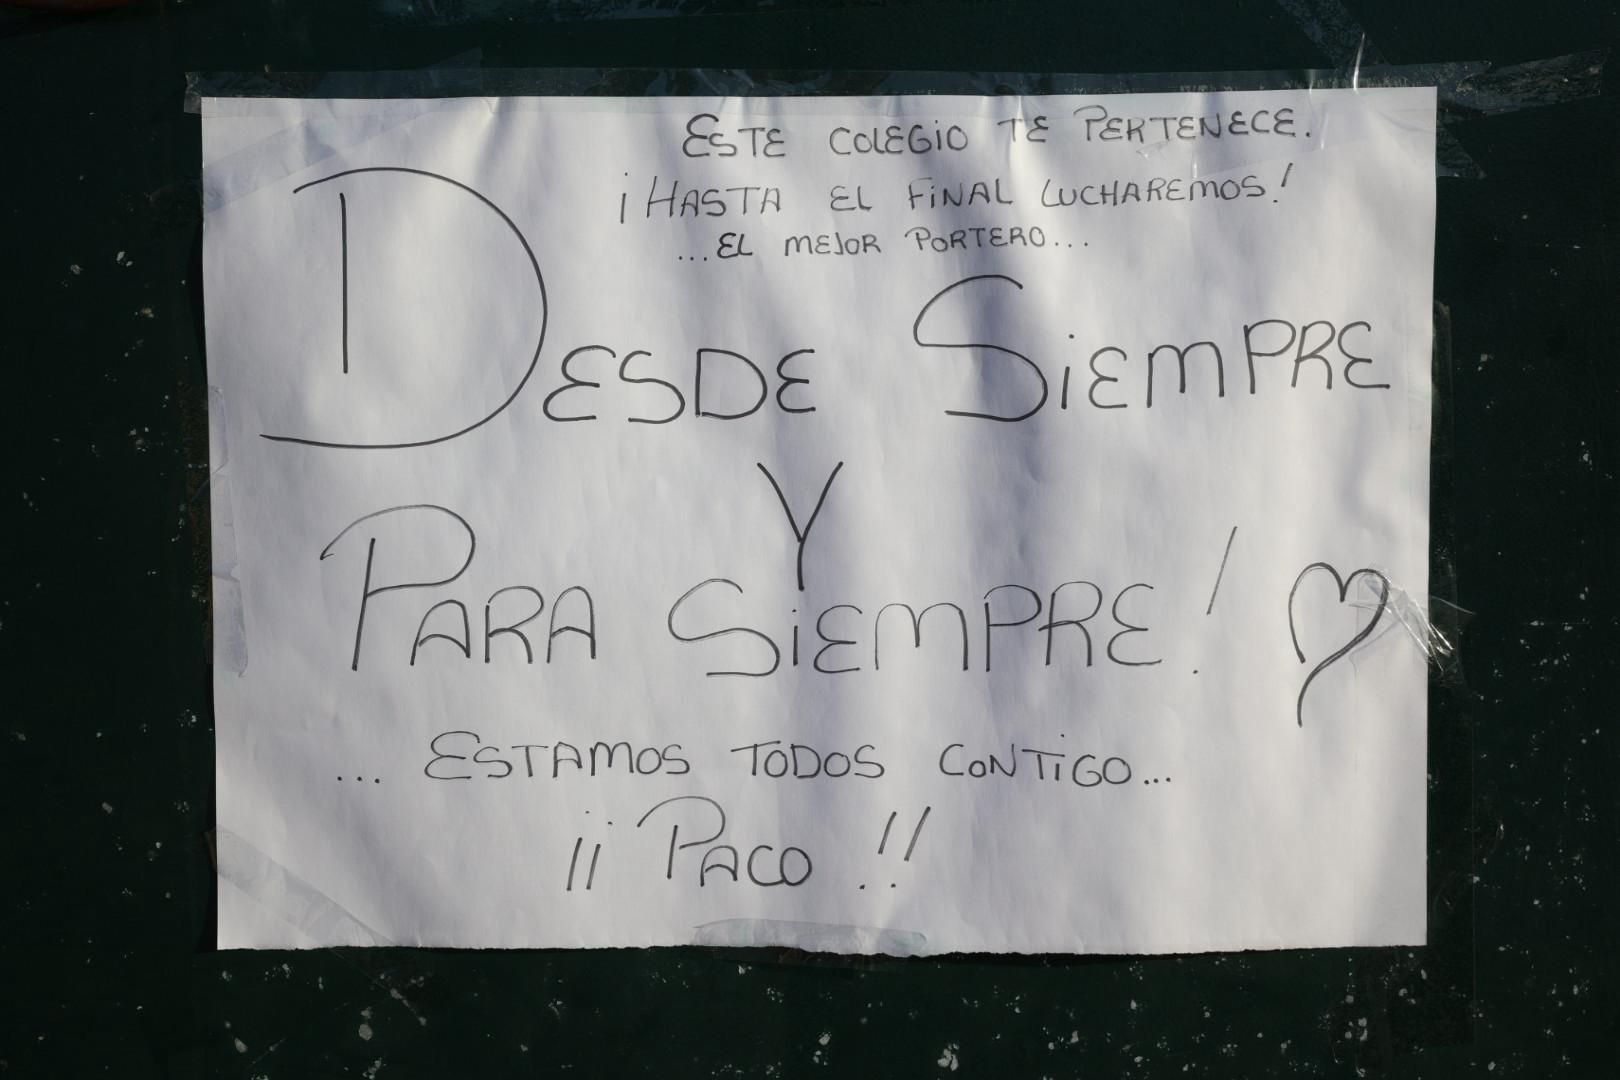 ESTE COLEGIO TE PERTENECE.
¡HASTA EL FINAL LUCHAREMOS!
...EL MEJOR PORTERO...
DESDE SIEMPRE
Y
PARA SIEMPRE!
... ESTAMOS TODOS CONTIGO...
¡¡PACO!!